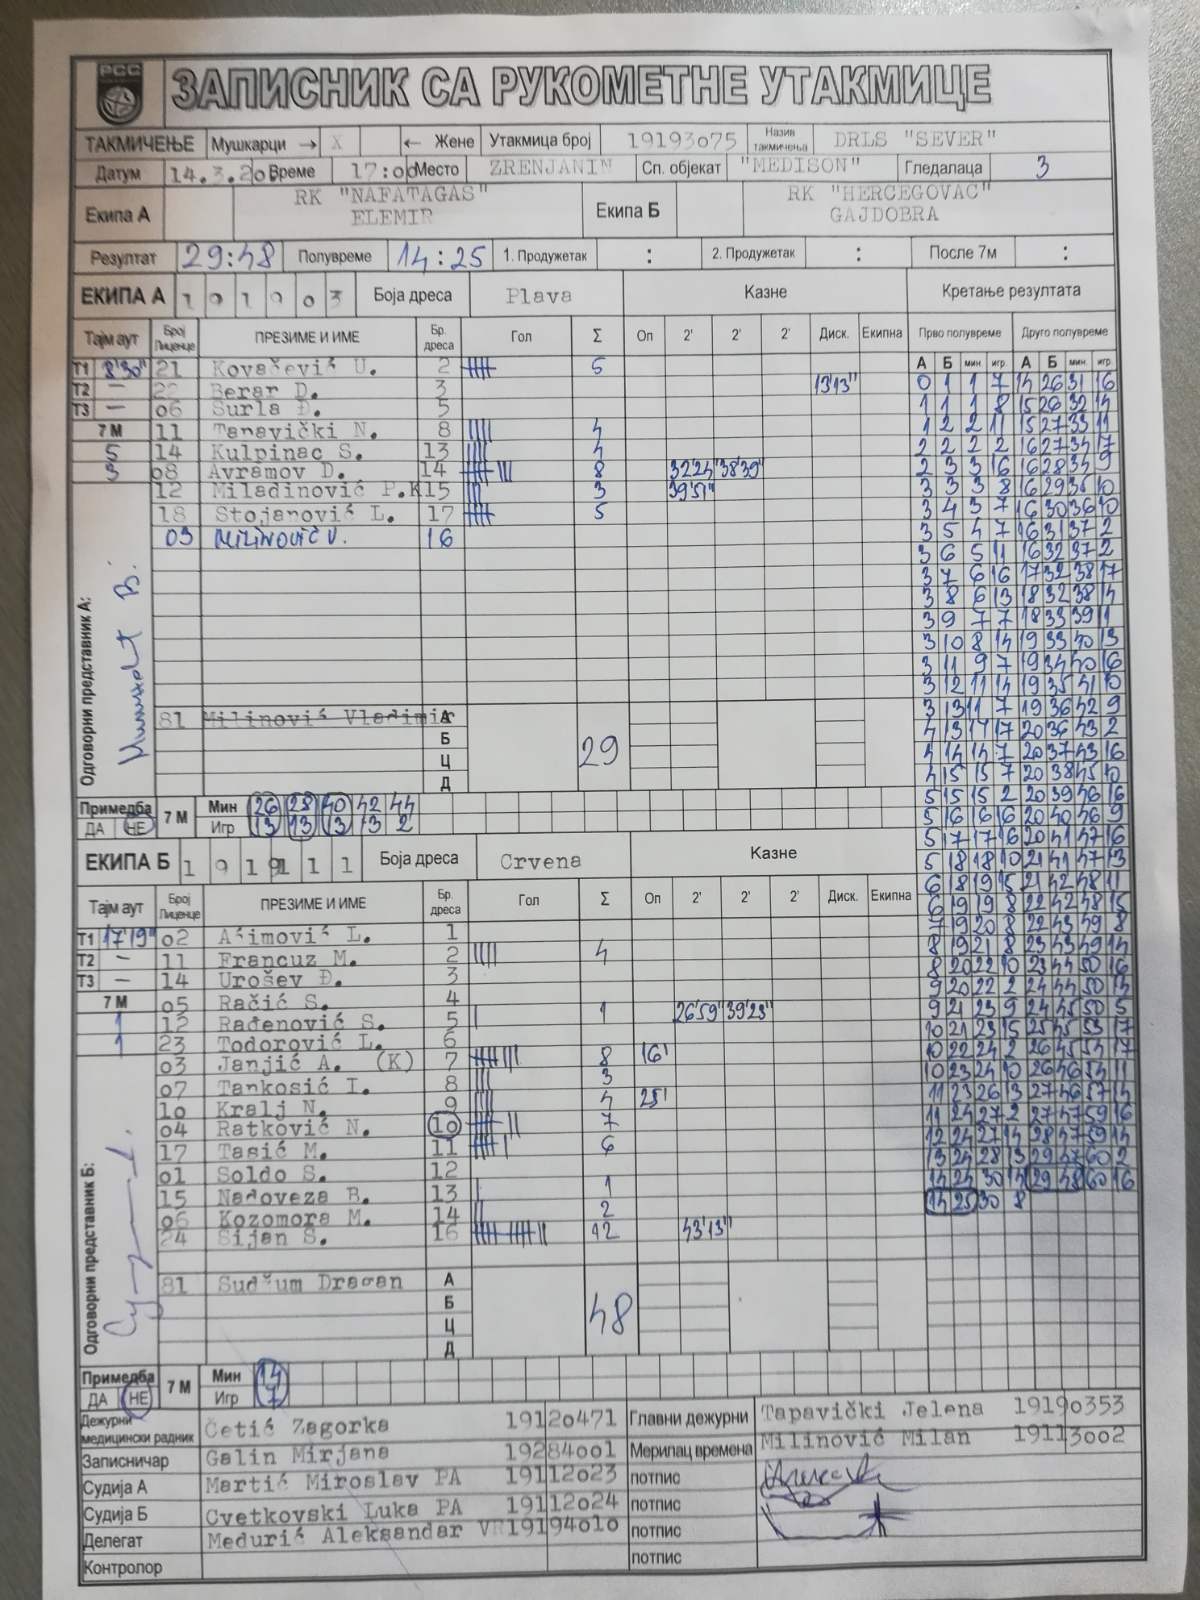 РСС
ЗАПИСНИК СА РУКОМЕТНЕ УТАКМИЦЕ
ТАКМИЧЕЊЕ Мушкарци → X ← Жене Утакмица број 19193o75 Назив такмичења DRLS "SEVER"
Датум 14.3.2o Време 17:oo Место ZRENJANIN Сп. објекат "MEDISON" Гледалаца 3
Екипа А RK "NAFATAGAS" ELEMIR Екипа Б RK "HERCEGOVAC" GAJDOBRA
Резултат 29:48 Полувреме 14:25 1. Продужетак : 2. Продужетак : После 7м :
ЕКИПА А 1 9 1 9 0 3 Боја дреса Plava Казне Кретање резултата
Тајм аут Број Лиценце ПРЕЗИМЕ И ИМЕ Бр. дреса Гол Σ Оп 2' 2' 2' Диск. Екипна Прво полувреме Друго полувреме
А Б мин игр А Б мин. игр.
Т1 8'30" 21 Kovačević U. 2 5
Т2 – 22 Berar D. 3 13'13"
Т3 – o6 Surla Đ. 5
7 М 11 Tapavički N. 8 4
5 14 Kulpinac S. 13 4
3 o8 Avramov D. 14 8 32'24" 38'39"
12 Miladinović P.K 15 3 39'51"
18 Stojanović L. 17 5
03 MILINOVIĆ V. 16
Одговорни представник А:
81 Milinović Vladimir А
Б
Ц
Д
29
Примедба ДА НЕ 7 М Мин 26 28 40 42 44
Игр 13 13 13 13 2
0 1 1 7 14 26 31 16
1 1 1 8 15 26 32 14
1 2 2 11 15 27 33 11
2 2 2 2 16 27 34 17
2 3 3 16 16 28 34 9
3 3 3 8 16 29 36 10
3 4 3 7 16 30 36 10
3 5 4 7 16 31 37 2
3 6 5 11 16 32 37 2
3 7 6 16 17 32 38 17
3 8 6 13 18 32 38 14
3 9 7 7 18 33 39 11
3 10 8 14 19 33 40 13
3 11 9 7 19 34 40 16
3 12 11 14 19 35 41 10
3 13 11 7 19 36 42 9
4 13 14 17 20 36 43 2
4 14 14 7 20 37 43 16
4 15 15 7 20 38 45 10
5 15 15 2 20 39 46 16
5 16 16 16 20 40 46 9
5 17 17 16 20 41 47 16
5 18 18 10 21 41 47 13
6 18 19 15 21 42 48 11
6 19 19 8 22 42 48 15
7 19 20 8 22 43 49 8
8 19 21 8 23 43 49 14
8 20 22 10 23 44 50 16
9 20 22 2 24 44 50 14
9 21 23 9 24 45 50 5
10 21 23 15 25 45 53 17
10 22 24 2 26 45 54 17
10 23 24 10 26 46 54 11
11 23 26 13 27 46 57 14
11 24 27 2 27 47 59 16
12 24 27 14 28 47 59 14
13 24 28 13 29 47 60 2
14 24 30 14 29 48 60 16
14 25 30 8
ЕКИПА Б 1 9 1 9 1 1 Боја дреса Crvena Казне
Тајм аут Број Лиценце ПРЕЗИМЕ И ИМЕ Бр. дреса Гол Σ Оп 2' 2' 2' Диск. Екипна
Т1 17'19" o2 Aćimović L. 1
Т2 – 11 Francuz M. 2 4
Т3 – 14 Urošev Đ. 3
7 М o5 Račić S. 4
1 12 Rađenović S. 5 1 26'59" 39'23"
1 23 Todorović L. 6
o3 Janjić A. (K) 7 8 16'
o7 Tankosić I. 8 3
1o Kralj N. 9 4 25'
o4 Ratković N. 1o 7
17 Tasić M. 11 6
o1 Soldo S. 12
15 Nadoveza B. 13 1
o6 Kozomora M. 14 2
24 Sijan S. 16 12 43'13"
Одговорни представник Б:
81 Sudžum Dragan А
Б
Ц
Д
48
Примедба ДА НЕ 7 М Мин 14
Игр 7
Дежурни медицински радник Četić Zagorka 1912o471 Главни дежурни Tapavički Jelena 1919o353
Записничар Galin Mirjana 19284oo1 Мерилац времена Milinović Milan 19113oo2
Судија А Martić Miroslav PA 19112o23 потпис
Судија Б Cvetkovski Luka PA 19112o24 потпис
Делегат Međurić Aleksandar VR 19194o1o потпис
Контролор потпис